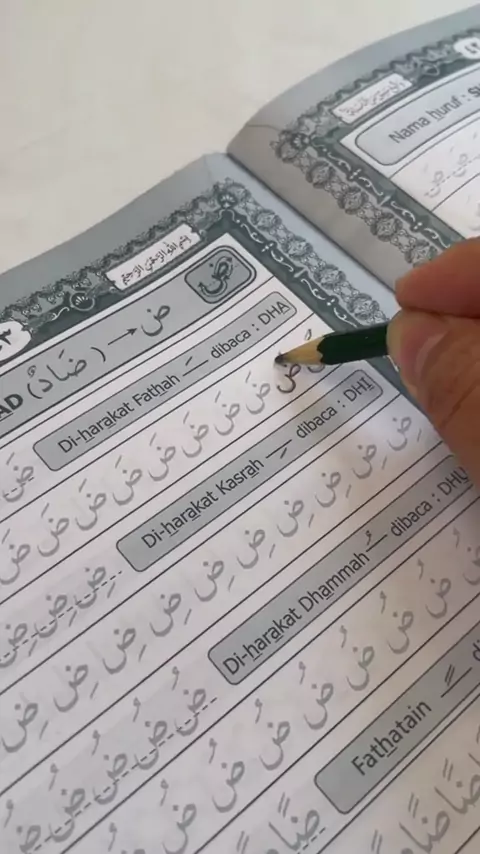 بِسْمِ اللّٰهِ الرَّحْمٰنِ الرَّحِيْمِ
ض
AD (ضَادٌ) → ض
Di-harakat Fathah ـَ dibaca : DHA
ضَ ضَ ضَ ضَ ضَ ضَ ضَ ضَ ضَ
ضَ
Di-harakat Kasrah ـِ dibaca : DHI
ضِ ضِ ضِ ضِ ضِ ضِ ضِ ضِ ضِ ضِ
ضِ ضِ ضِ
Di-harakat Dhammah ـُ dibaca : DHU
ضُ ضُ ضُ ضُ ضُ ضُ ضُ ضُ
ضُ ضُ ضُ ضُ ضُ
Fathatain ـً
ضًا ضًا ضًا
ضًا
Nama huruf :